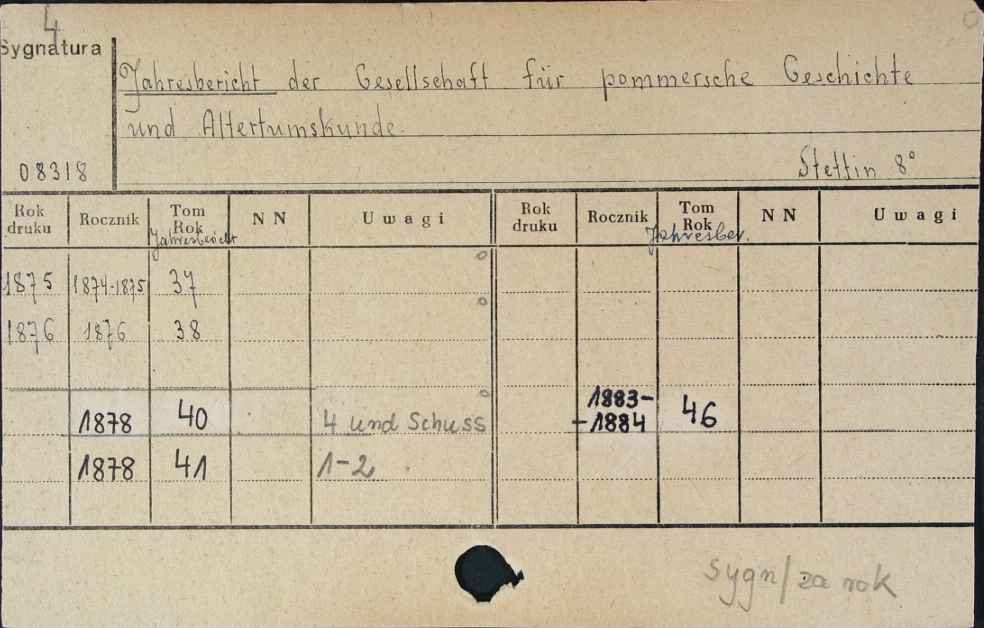 4
Sygnatura
Jahresbericht der Gesellschaft für pommersche Geschichte
und Altertumskunde.
08318 Stettin 8°
Rok druku Rocznik Tom Rok NN Uwagi Rok druku Rocznik Tom Rok NN Uwagi
Jahresbericht Jahresber.
1875 1874-1875 37
1876 1876 38
1878 40 4 und Schuss 1883-
-1884 46
1878 41 1-2
Sygn/za rok